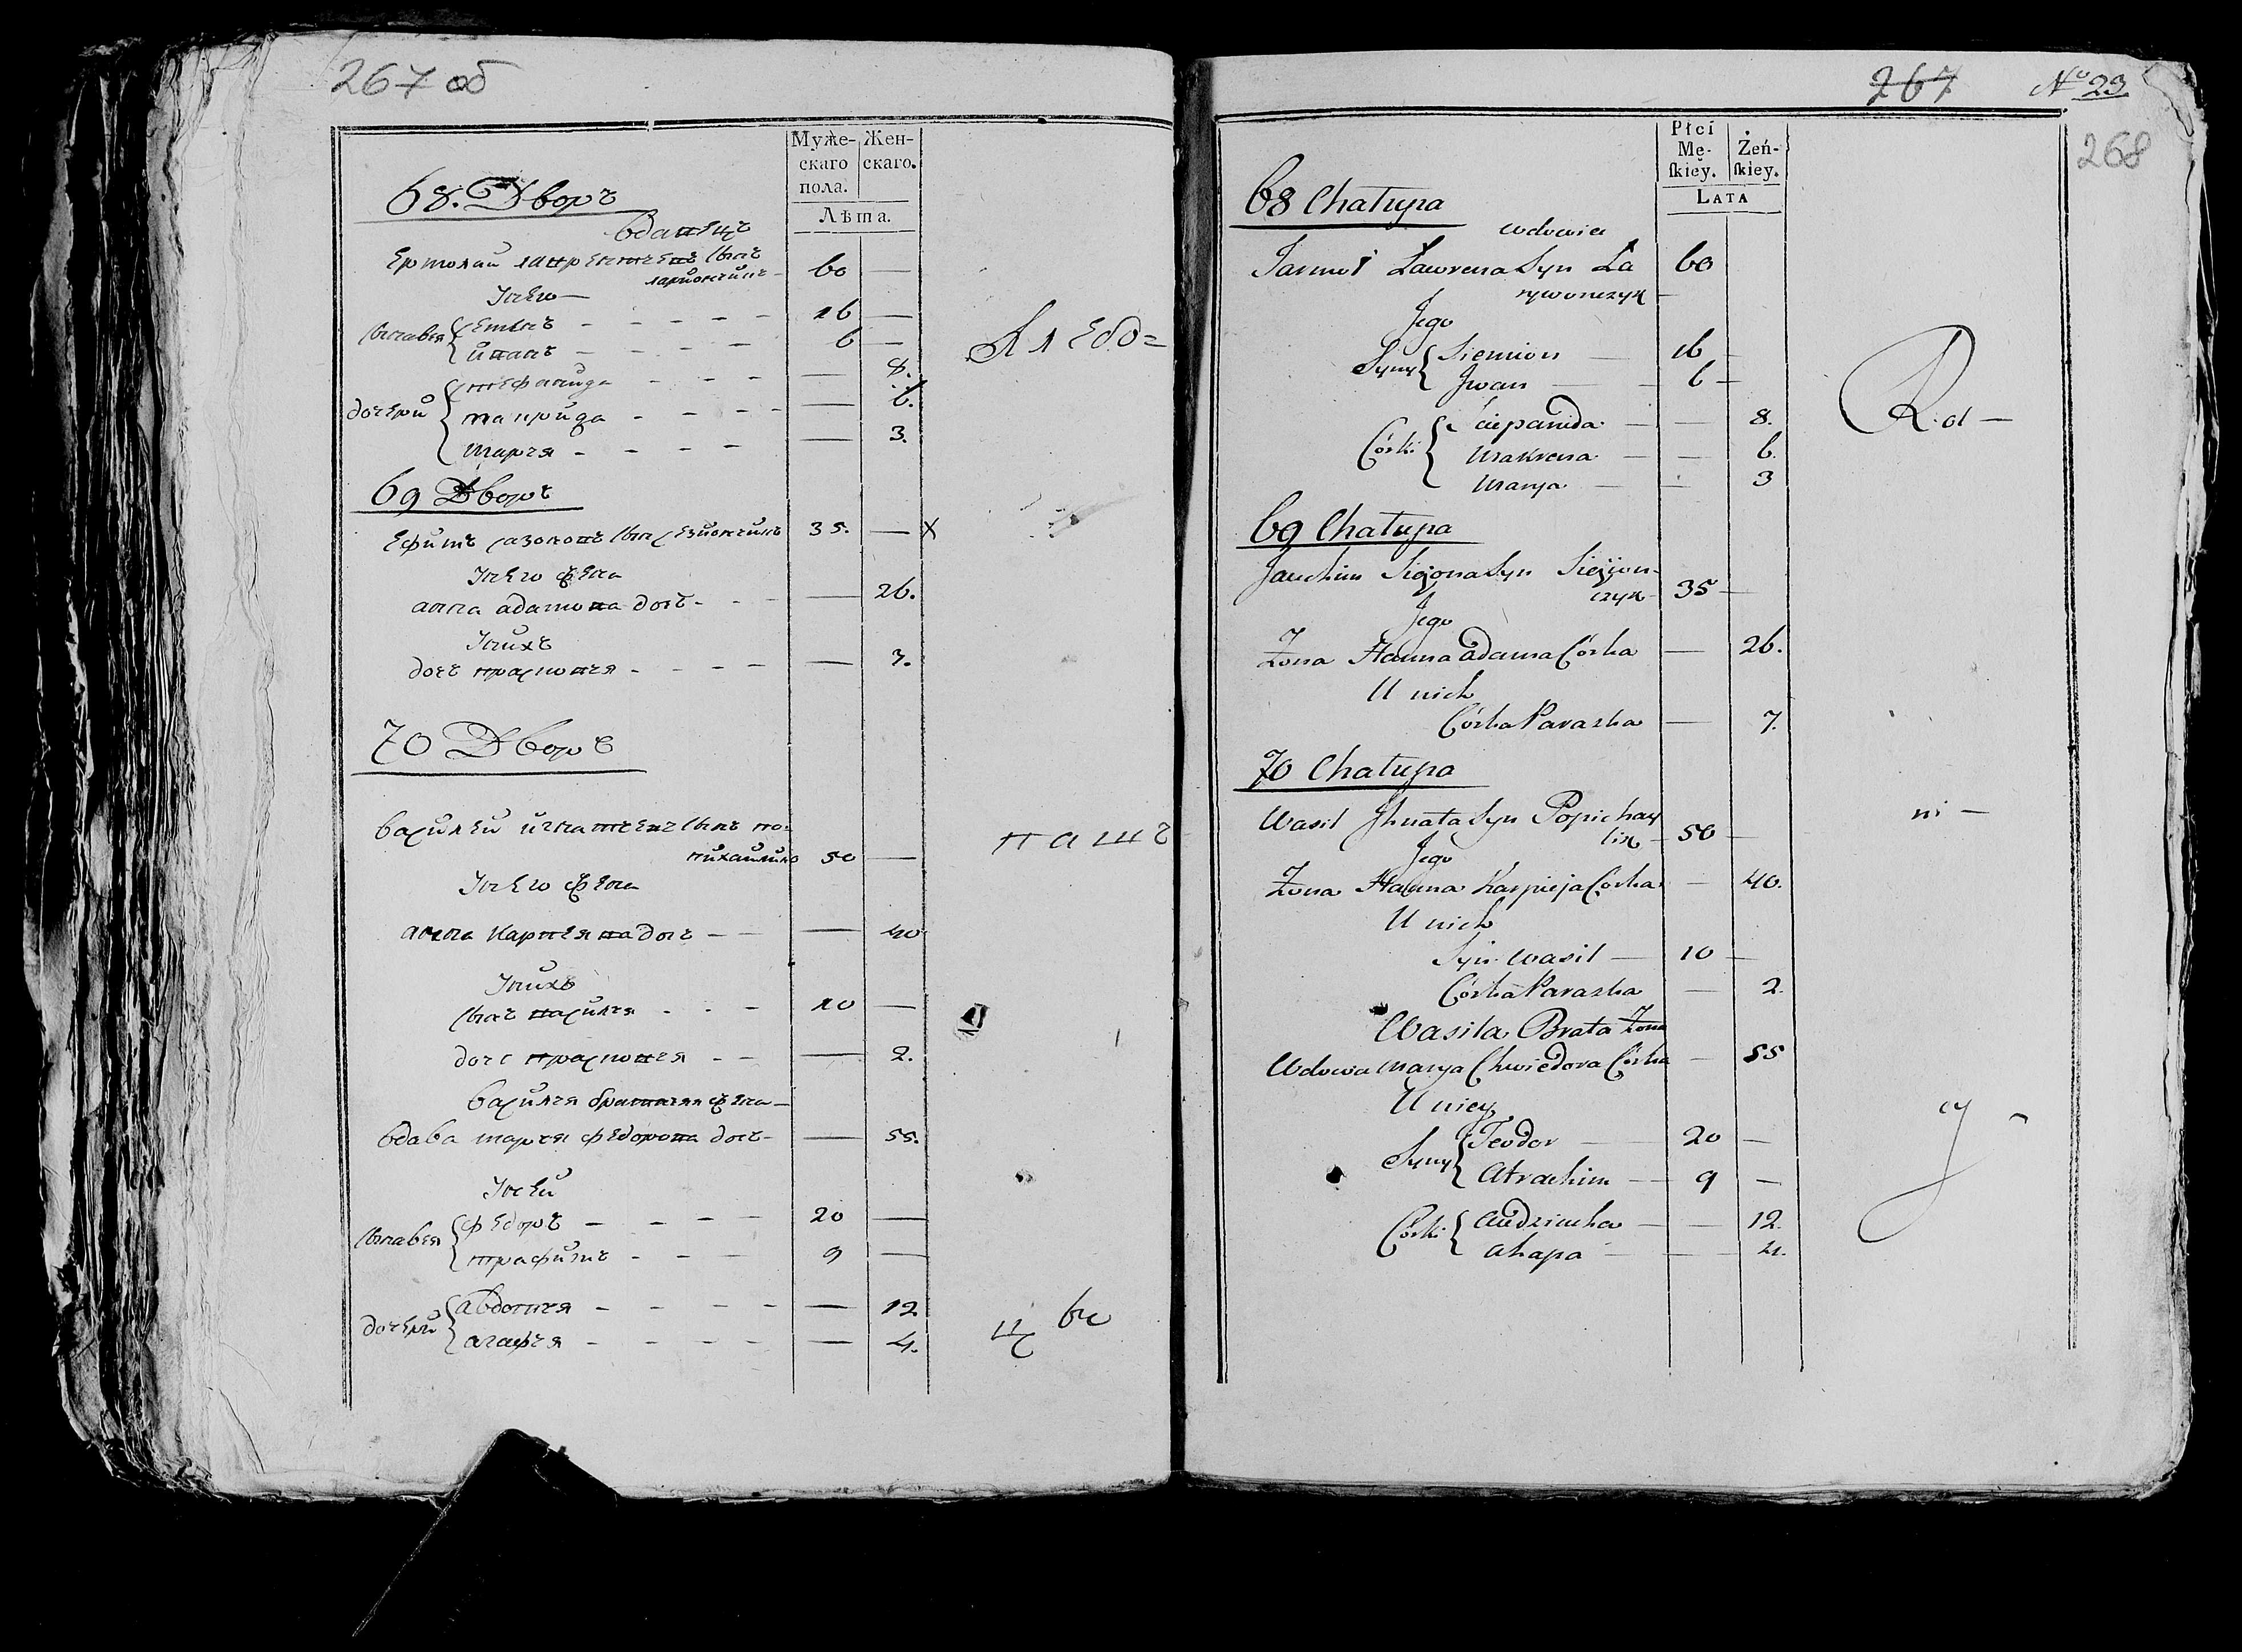 267 об
Муже-
скаго
пола.
Жен-
скаго.
Лѣта.
68. Дворъ
вдавецъ
Ермолай лавренътевъ сынъ
ларивончикъ
60
Унего
сынавья
семенъ 16
иванъ 6
дочери
стефанида 8.
маврида 6.
марья 3.
Хлебо=
69 Дворъ
Ефимъ сазоновъ сынъ 35. X
Унего жена
анна адамова дочь 26.
Унихъ
дочь прасковья 7.
70 Дворъ
василей игнатьевъ сынъ по-
пихайликъ 50
Унего жена
анна карпеява дочь 40
Унихъ
сынъ василья 10
дочь прасковья 2.
василья братняя жена
вдава марья федорова дочь 55.
Уней
сынавья
федоръ 20
трафимъ 9
дочери
авдотья 12
агафья 4.
пашъ
267
No 23
268
Płci
Mę-
skiéy.
Żeń-
skiéy.
LATA
68 Chałupa
wdowiec
Jarmoł Ławrena Syn Ła
rywonczyk
60
Jego
Syny
Siemion 16
Jwan 6
Córki
Sciepanida 8.
Makrena 6.
Marya 3
Rol
69 Chałupa
Jauchim Sigona Syn Siezion-
czyk 35
Jego
Żona Hanna adama Córka 26.
U nich
Córka Paraska 7.
70 Chałupa
Wasil Jhnata Syn Popichay
lik 50
Jego
Żona Hanna Karpieja Córka 40.
U nich
Syn Wasil 10
Córka Paraska 2.
Wasila Brata Żona
Wdowa Marya Chwiedora Córka 55
U niey
Syny
Teodor 20
Atrachim 9
Córki
Audziucha 12.
Ahapa 4.
ni
cy